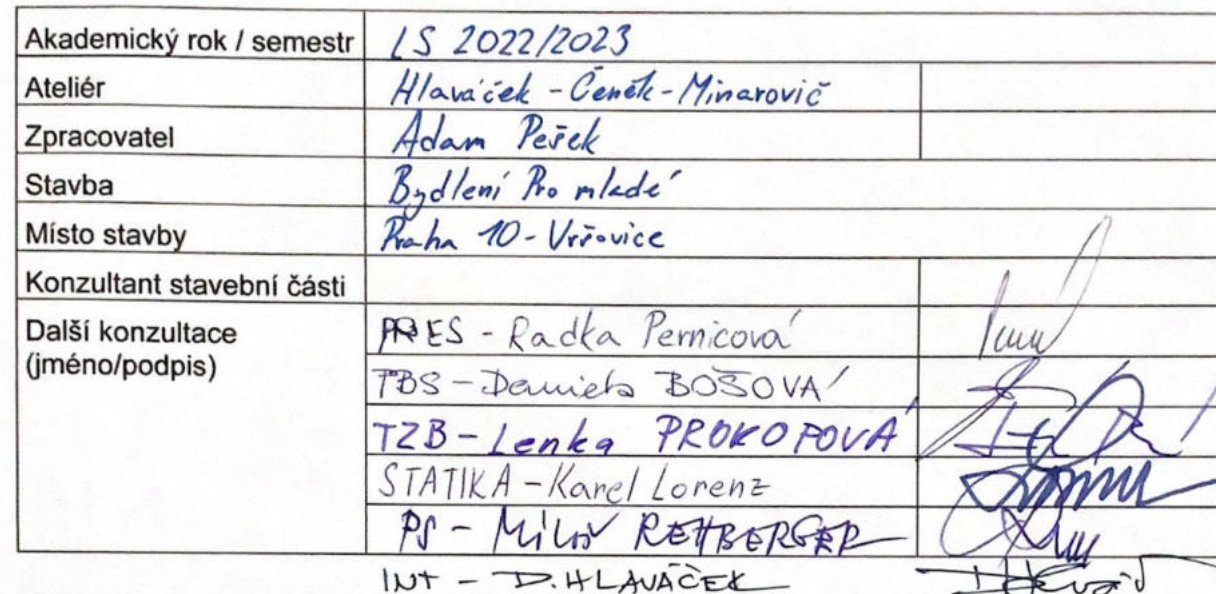 Akademický rok / semestr LS 2022/2023
Ateliér Hlaváček - Čeněk - Minarovič
Zpracovatel Adam Pešek
Stavba Bydlení Pro mladé
Místo stavby Praha 10 - Vršovice
Konzultant stavební části
Další konzultace PRES - Radka Pernicová
(jméno/podpis)
PBS - Daniela BOŠOVÁ
TZB - Lenka PROKOPOVÁ
STATIKA - Karel Lorenz
PS - Miloš REHBERGER
INT - D. HLAVÁČEK